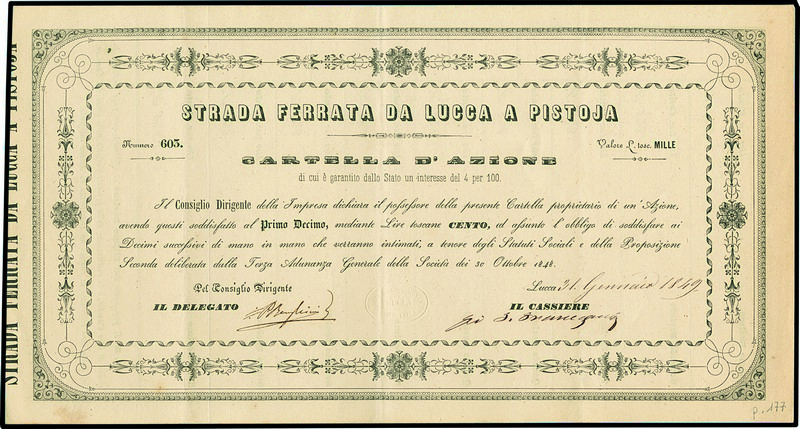 STRADA FERRATA DA LUCCA A PISTOJA
STRADA FERRATA DA LUCCA A PISTOJA
Numero 603.
Valore L. tosc. MILLE
CARTELLA D'AZIONE
di cui è garantito dallo Stato un interesse del 4 per 100.
Il Consiglio Dirigente della Impresa dichiara il possessore della presente Cartella proprietario di un'Azione,
avendo questi soddisfatto al Primo Decimo, mediante Lire toscane CENTO, ed assunto l'obbligo di soddisfare ai
Decimi successivi di mano in mano che verranno intimati, a tenore degli Statuti Sociali e della Proposizione
Seconda deliberata dalla Terza Adunanza Generale della Società dei 30 Ottobre 1848.
Pel Consiglio Dirigente
Lucca 31. Gennaio 1849
IL DELEGATO
IL CASSIERE
p. 177